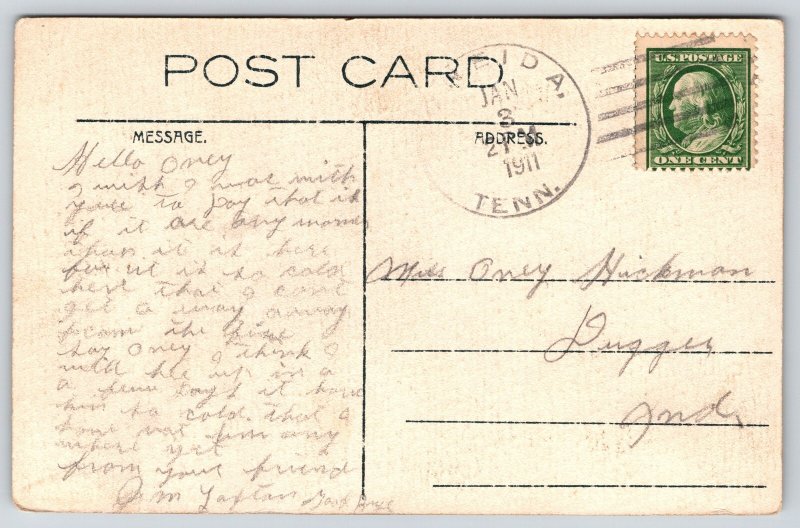 POST CARD
EIDA,
JAN
3
1911
TENN.
U.S. POSTAGE
ONE CENT
MESSAGE.
ADDRESS.
Hello Oney
I wish I was with
you to
if it are any
than it is here
for it is so cold
here that I cant
get a way away
from the fire
Say Oney I think I
will see up in a
a few days it
so cold that I
have not any
where yet
from your friend
Jim
Miss Oney Hickman
Dugger
Ind,